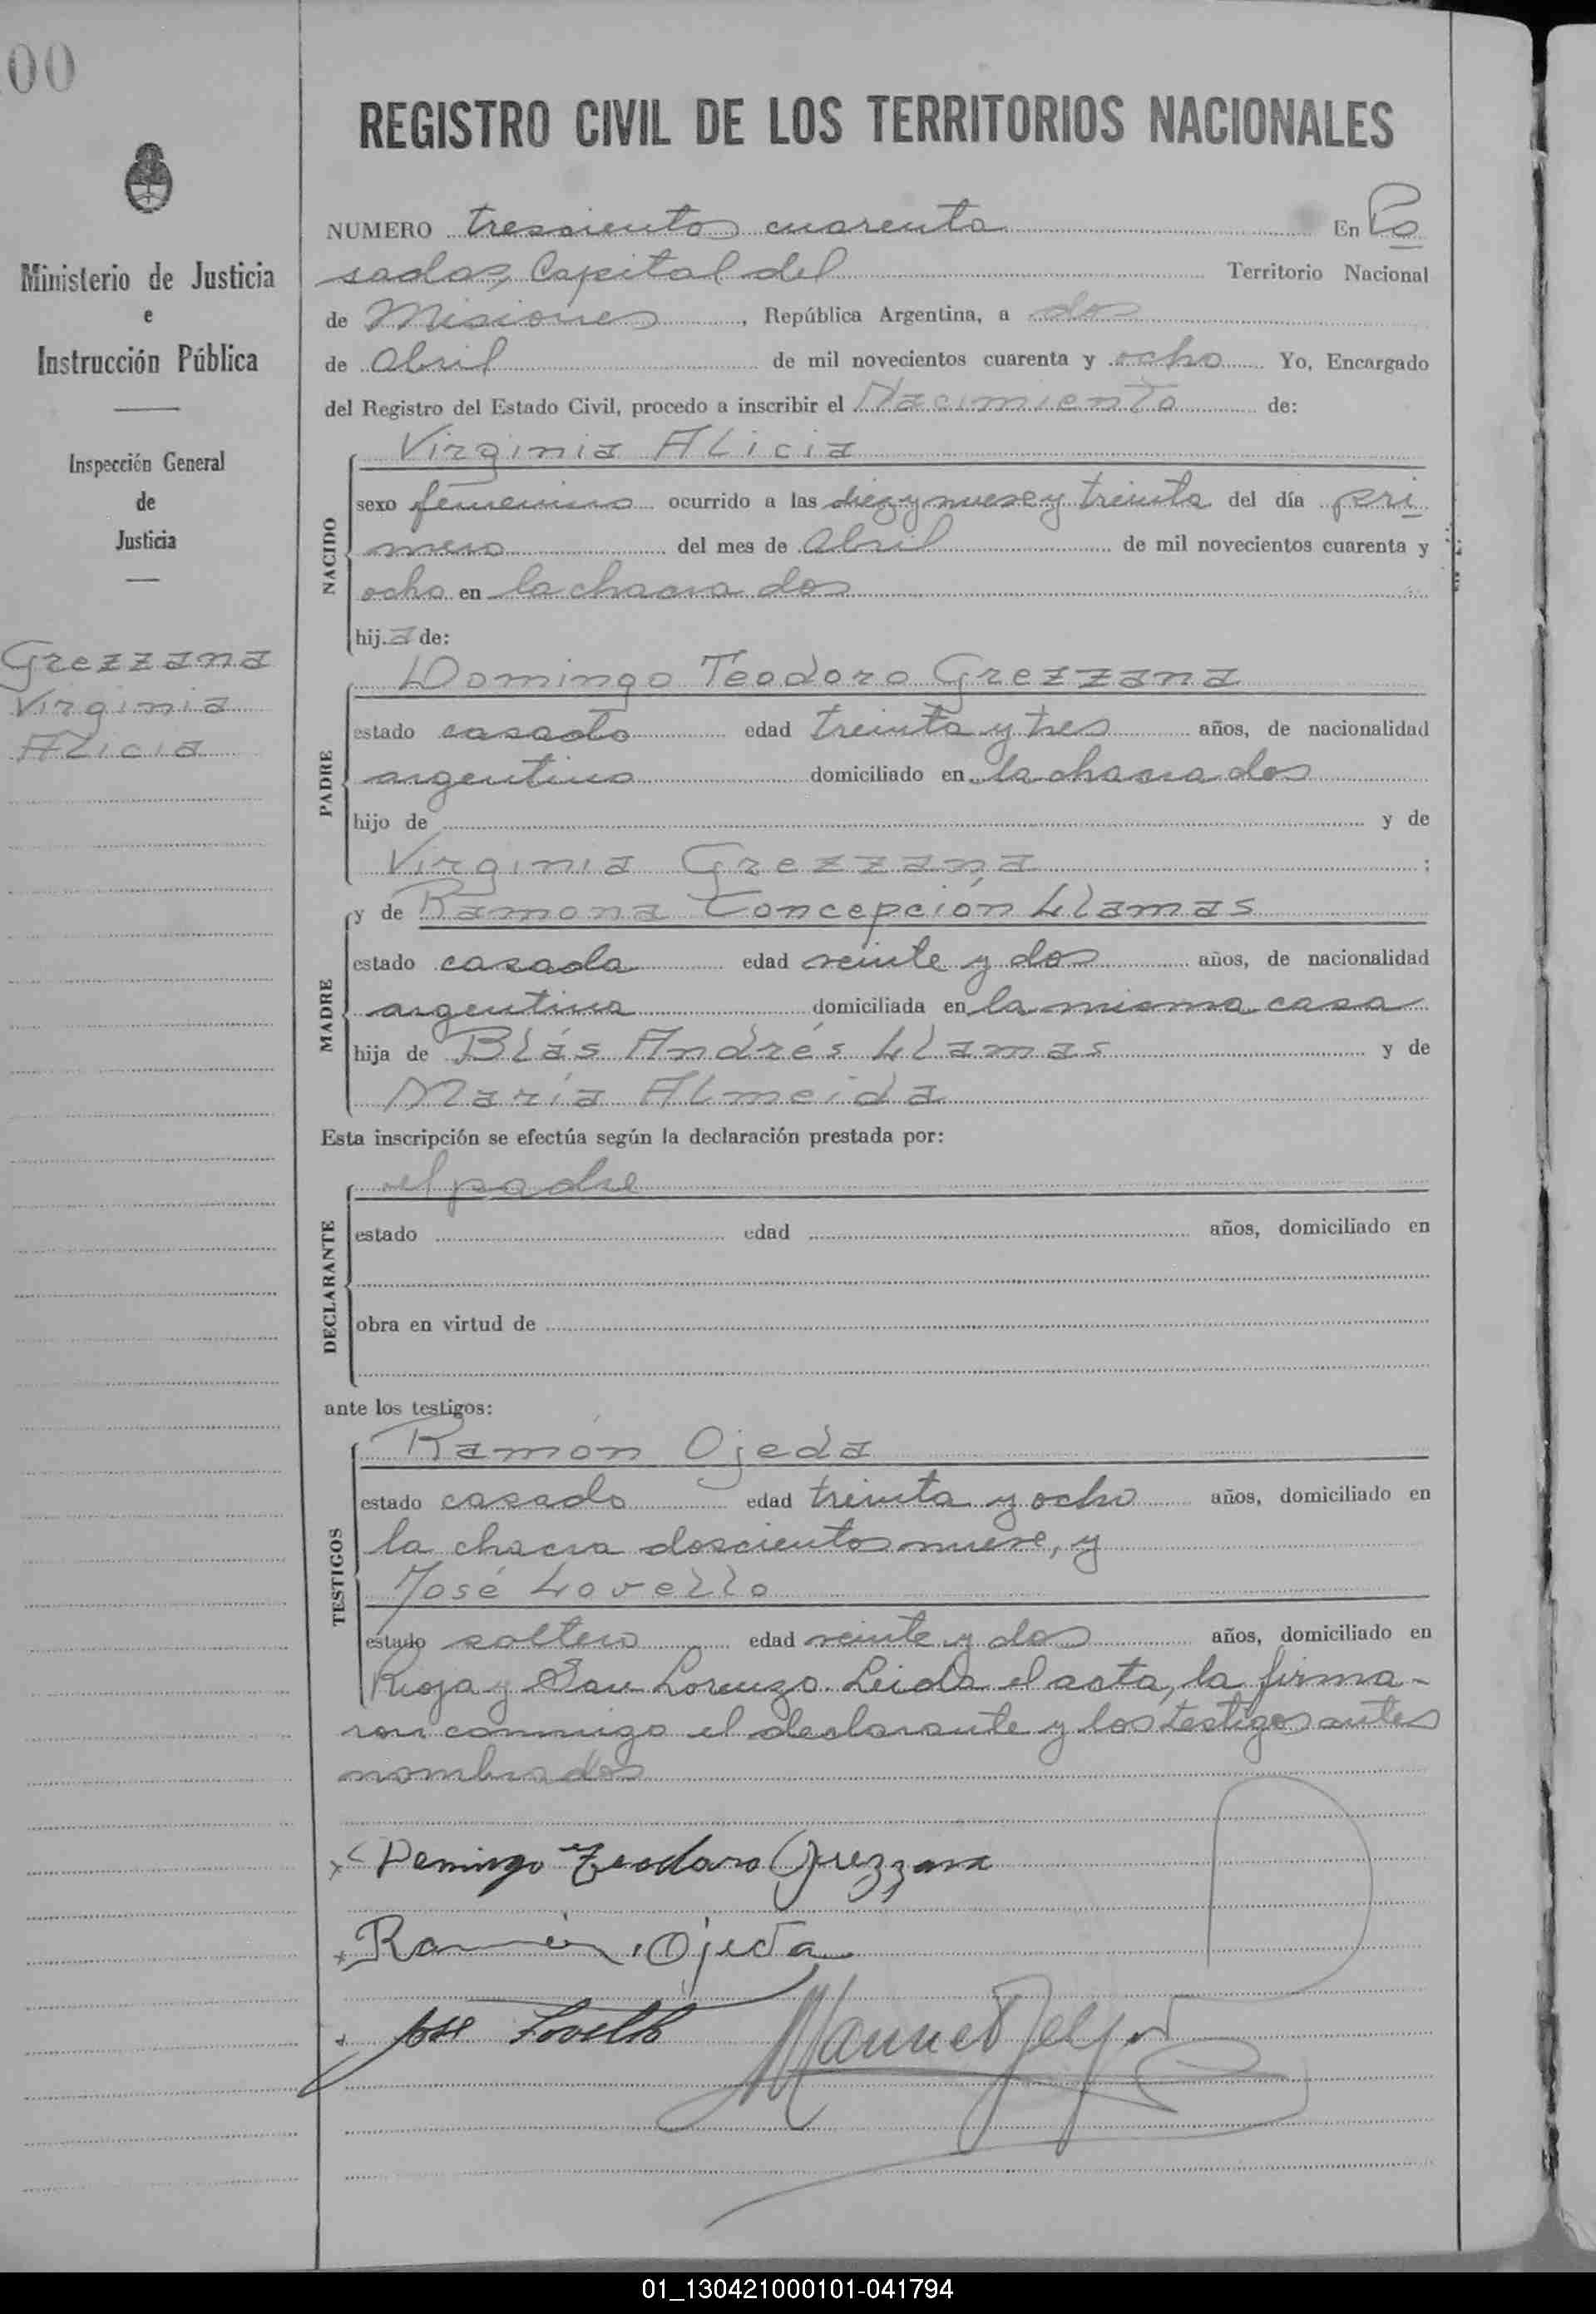 00
Ministerio de Justicia
e
Instrucción Pública
Inspección General
de
Justicia
Grezzana
Virginia
Alicia
REGISTRO CIVIL DE LOS TERRITORIOS NACIONALES
NUMERO trescientos cuarenta En Po
sadas, Capital del Territorio Nacional
de Misiones, República Argentina, a dos
de Abril de mil novecientos cuarenta y ocho Yo, Encargado
del Registro del Estado Civil, procedo a inscribir el Nacimiento de:
Virginia Alicia
NACIDO
sexo femenino ocurrido a las diez y nueve y treinta del día pri
mero del mes de Abril de mil novecientos cuarenta y
ocho en la chacra dos
hija de:
Domingo Teodoro Grezzana
PADRE
estado casado edad treinta y tres años, de nacionalidad
argentino domiciliado en la chacra dos
hijo de y de
Virginia Grezzana ;
y de Ramona Concepción Llamas
MADRE
estado casada edad veinte y dos años, de nacionalidad
argentina domiciliada en la misma casa
hija de Blás Andrés Llamas y de
María Almeida
Esta inscripción se efectúa según la declaración prestada por:
el padre
DECLARANTE
estado edad años, domiciliado en
obra en virtud de
ante los testigos:
Ramón Ojeda
TESTIGOS
estado casado edad treinta y ocho años, domiciliado en
la chacra doscientos nueve, y
José Lovello
estado soltero edad veinte y dos años, domiciliado en
Rioja y San Lorenzo. Leida el acta, la firma-
ron conmigo el declarante y los testigos antes
nombrados
Domingo Teodoro Grezzana
Ramón Ojeda
José Lovello
Manuel
01_130421000101-041794